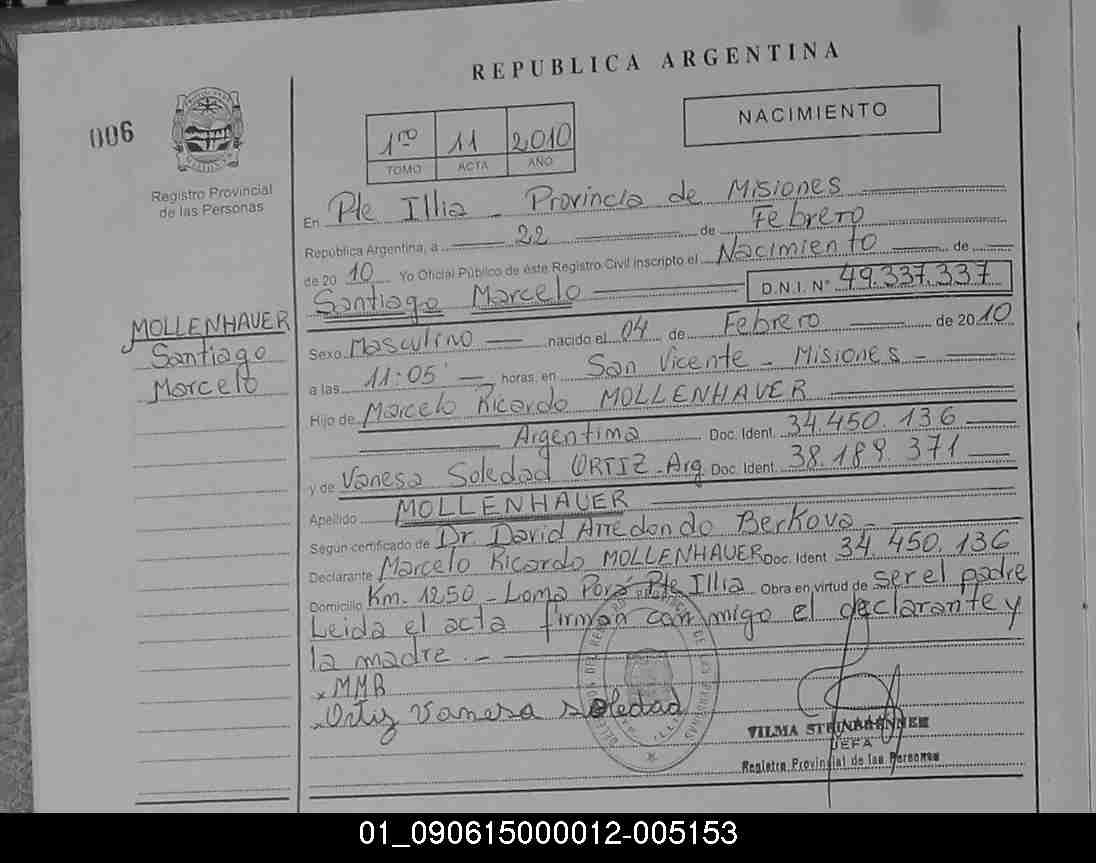 REPUBLICA ARGENTINA
006
1ro 11 2010
TOMO ACTA AÑO
NACIMIENTO
Registro Provincial
de las Personas
En Pte Illia - Provincia de Misiones
República Argentina, a 22 de Febrero
de 2010 Yo Oficial Público de éste Registro Civil inscripto el Nacimiento de
Santiago Marcelo D.N.I. N° 49.337.337
MOLLENHAUER
Santiago
Marcelo
Sexo Masculino nacido el 04 de Febrero de 2010
a las 11:05 horas, en San Vicente - Misiones -
Hijo de Marcelo Ricardo MOLLENHAUER
Argentina Doc. Ident. 34.450.136
y de Vanesa Soledad ORTIZ - Arg Doc. Ident. 38.189.371
Apellido MOLLENHAUER
Según certificado de Dr David Arredondo Berkova -
Declarante Marcelo Ricardo MOLLENHAUER Doc. Ident 34.450.136
Domicilio Km. 1250 - Loma Porá - Pte Illia Obra en virtud de ser el padre
Leida el acta firman conmigo el declarante y
la madre. -
x MMR
x Ortiz Vanesa soledad
VILMA STEINBRENNER
JEFA
Registro Provincial de las Personas
01_090615000012-005153